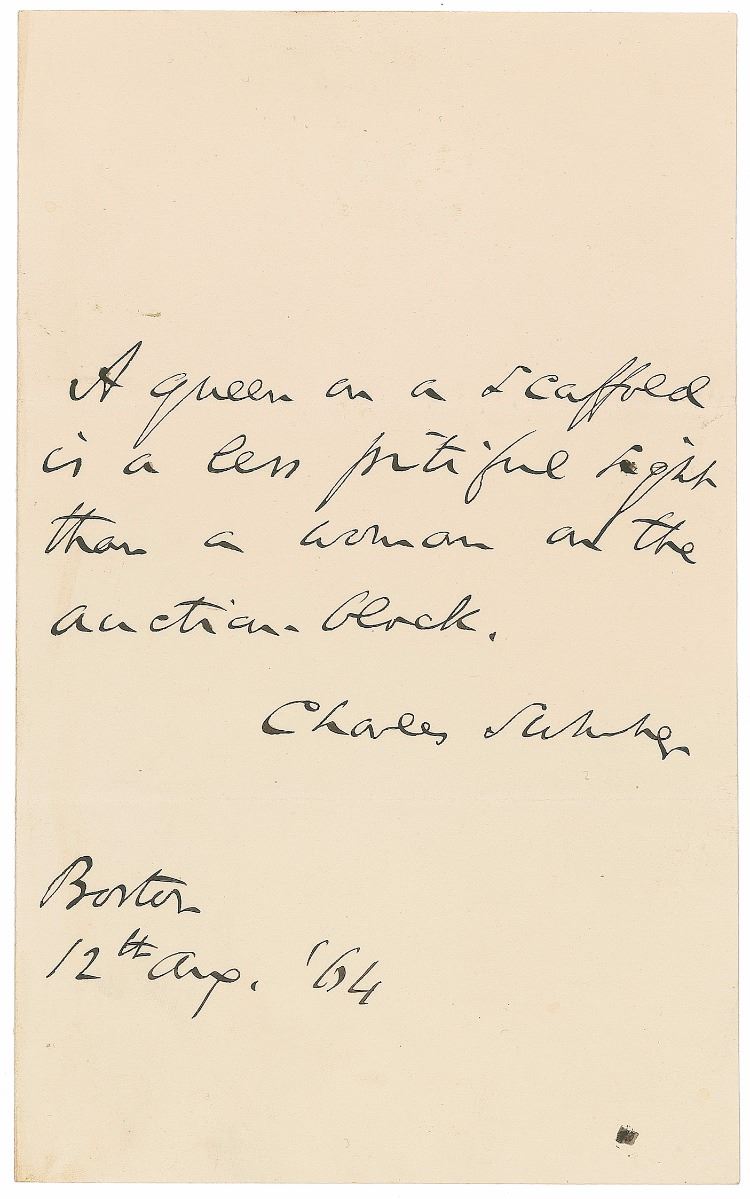 A queen on a scaffold
is a less pitiful sight
than a woman on the
auction-block.
Charles Sumner
Boston
12th Aug. '64